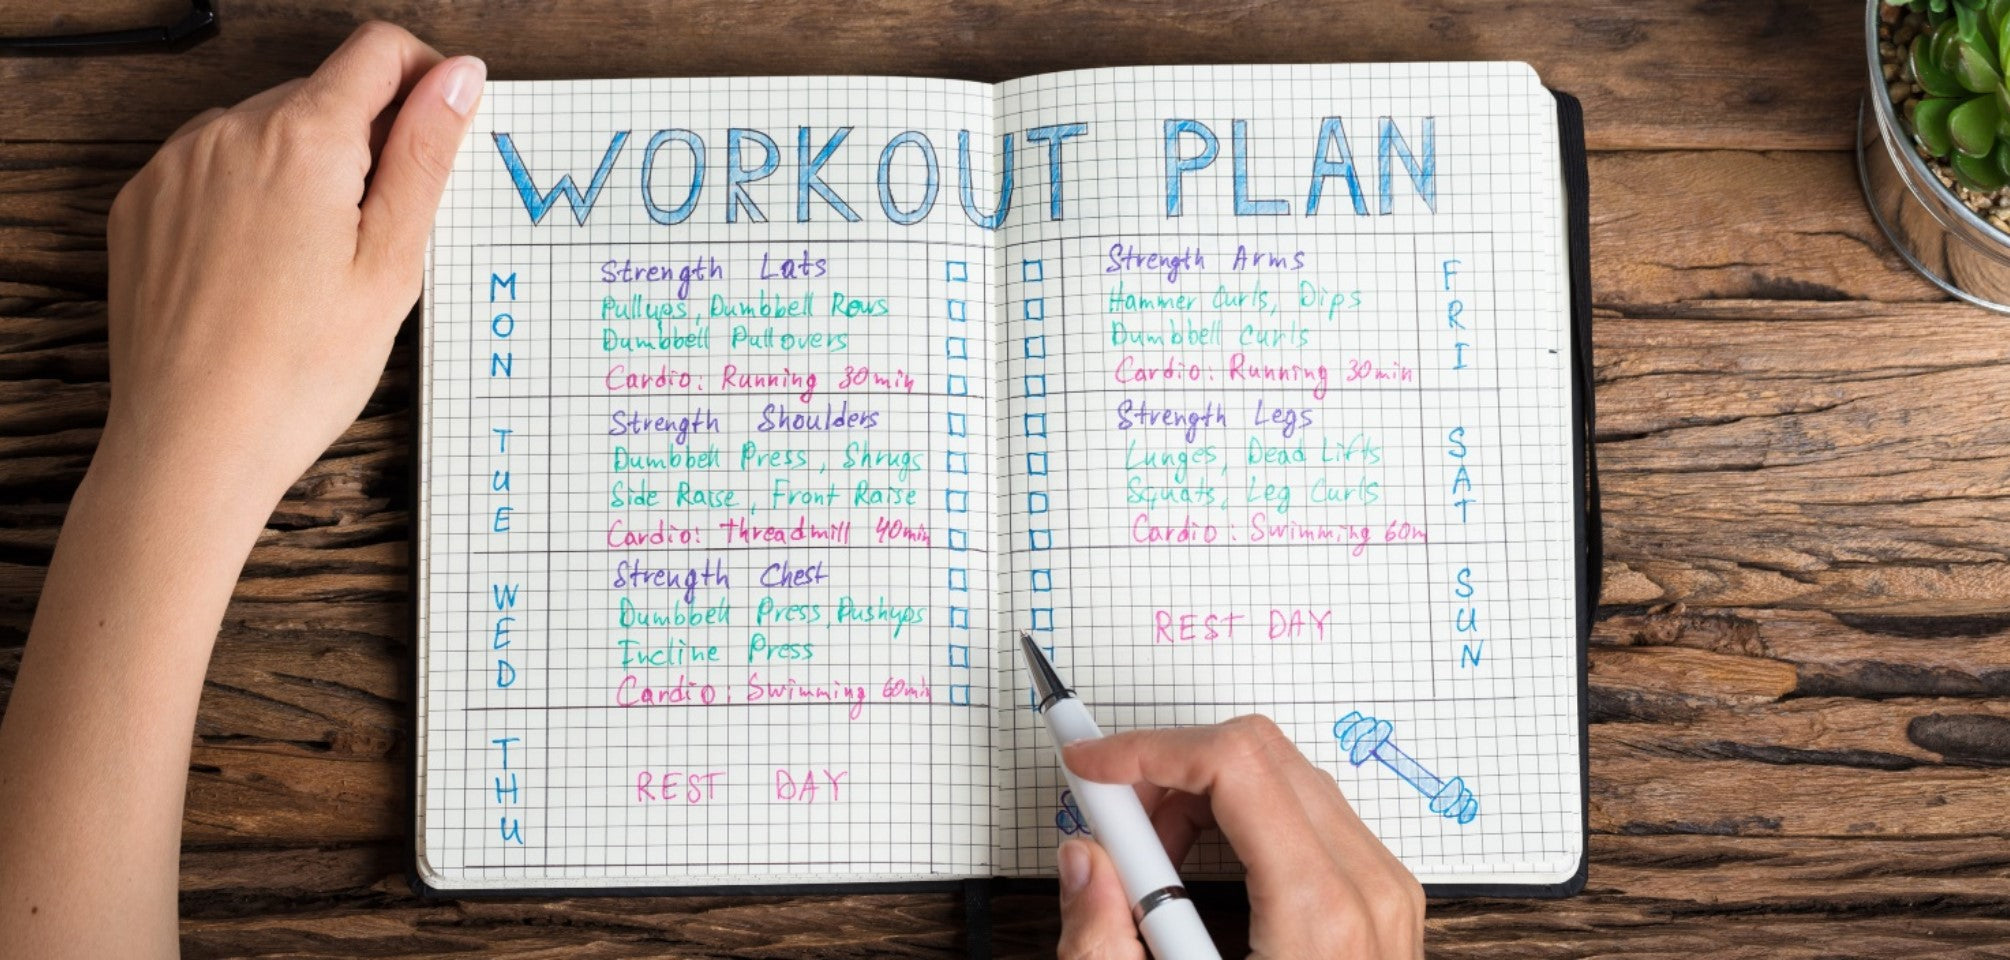 WORKOUT PLAN
MON
Strength Lats
Pullups, Dumbbell Rows
Dumbbell Pullovers
Cardio: Running 30min
TUE
Strength Shoulders
Dumbbell Press, Shrugs
Side Raise, Front Raise
Cardio: threadmill 40min
WED
Strength Chest
Dumbbell Press, Pushups
Incline Press
Cardio: Swimming 60min
THU
REST DAY
FRI
Strength Arms
Hammer Curls, Dips
Dumbbell Curls
Cardio: Running 30min
SAT
Strength Legs
Lunges, Dead Lifts
Squats, Leg Curls
Cardio: Swimming 60m
SUN
REST DAY